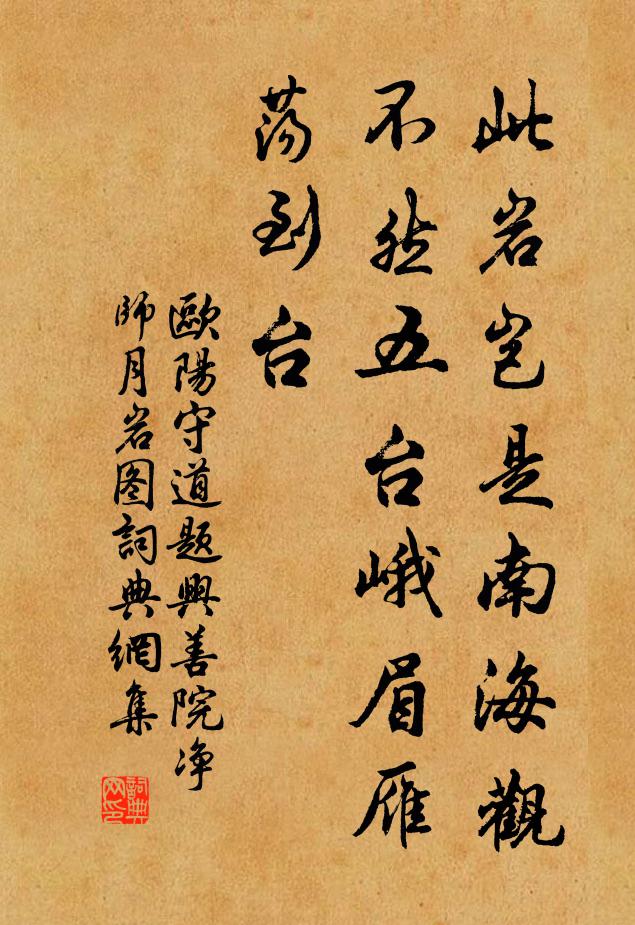 此岩岂是南海觀
不然五台峨眉雁
蕩到台
歐陽守道題興善院净
師月岩图詞典網集
詞典网印